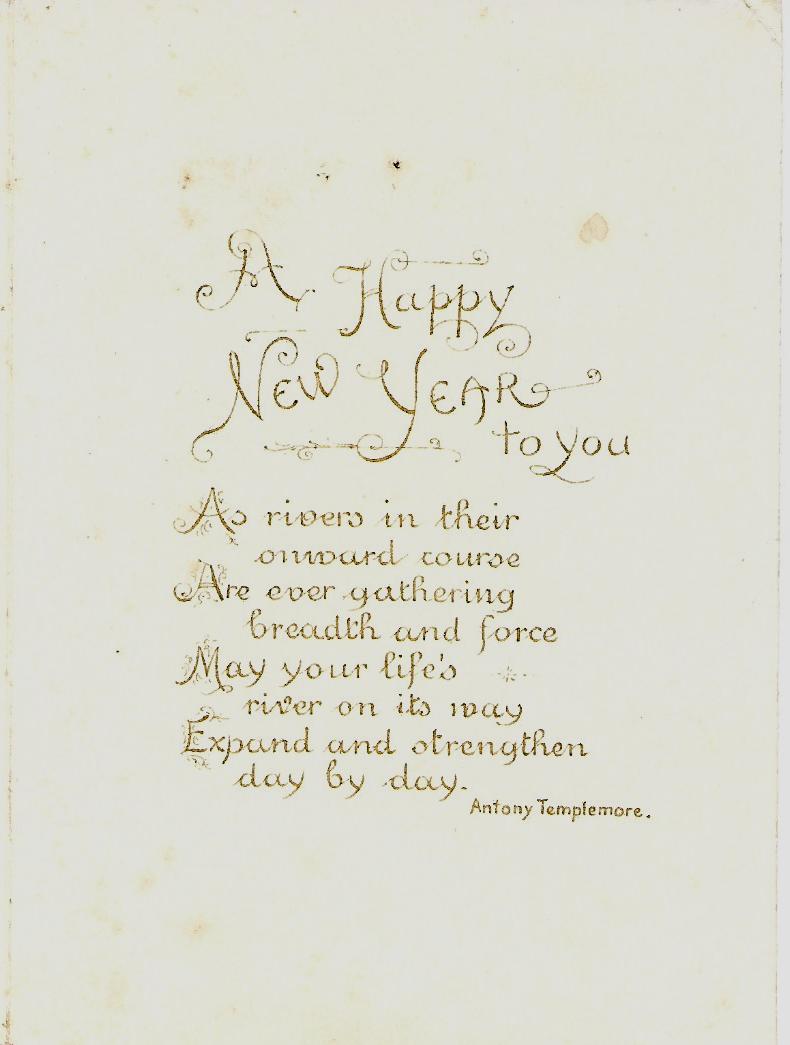 A Happy
New Year
to you
As rivers in their
onward course
Are ever gathering
breadth and force
May your life's
river on its way
Expand and strengthen
day by day.
Antony Templemore.